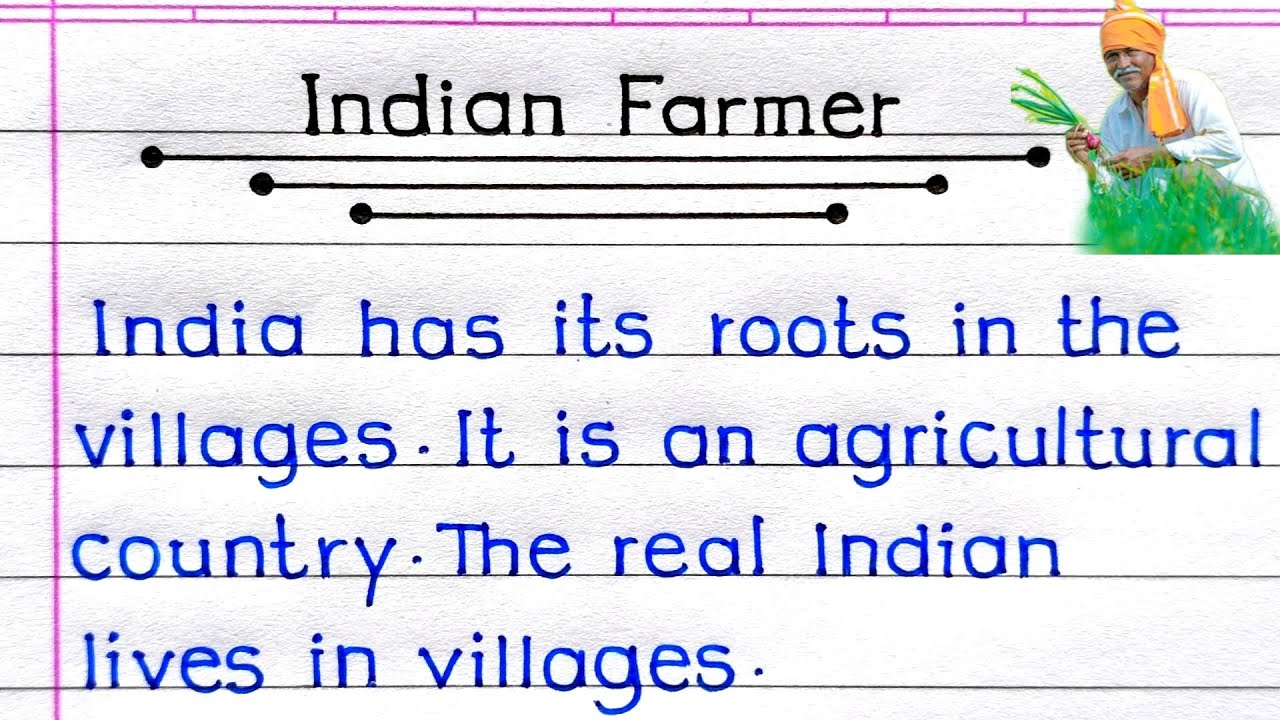 Indian Farmer
India has its roots in the
villages. It is an agricultural
country. The real Indian
lives in villages.